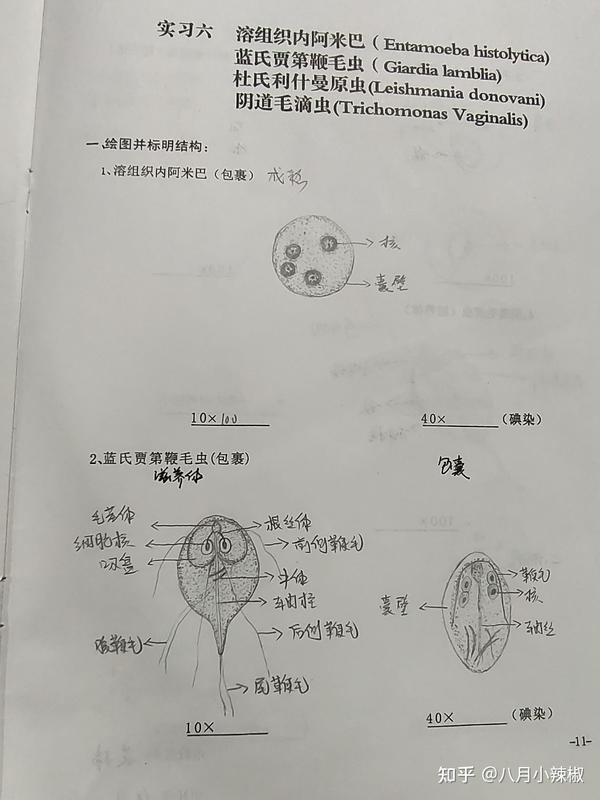 实习六 溶组织内阿米巴 ( Entamoeba histolytica)
蓝氏贾第鞭毛虫 ( Giardia lamblia)
杜氏利什曼原虫(Leishmania donovani)
阴道毛滴虫(Trichomonas Vaginalis)
一、绘图并标明结构:
1、溶组织内阿米巴 (包裹) 成熟
核
囊壁
10×100
40× (碘染)
2、蓝氏贾第鞭毛虫(包裹)
滋养体
包囊
毛基体
根丝体
细胞核
前侧鞭毛
吸盘
中体
轴柱
腹鞭毛
后侧鞭毛
尾鞭毛
10×
囊壁
鞭毛
核
轴丝
40× (碘染)
-11-
知乎 @八月小辣椒